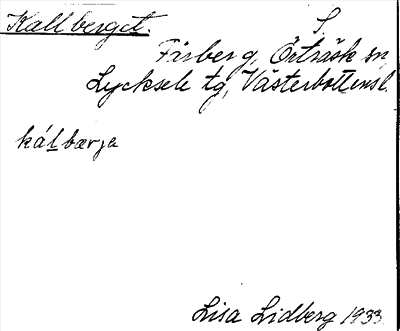 Kallberget. S
Fårberg, Örträsk sn,
Lycksele tg, Västerbottensl.
kálbærja
Lisa Lidberg 1933.